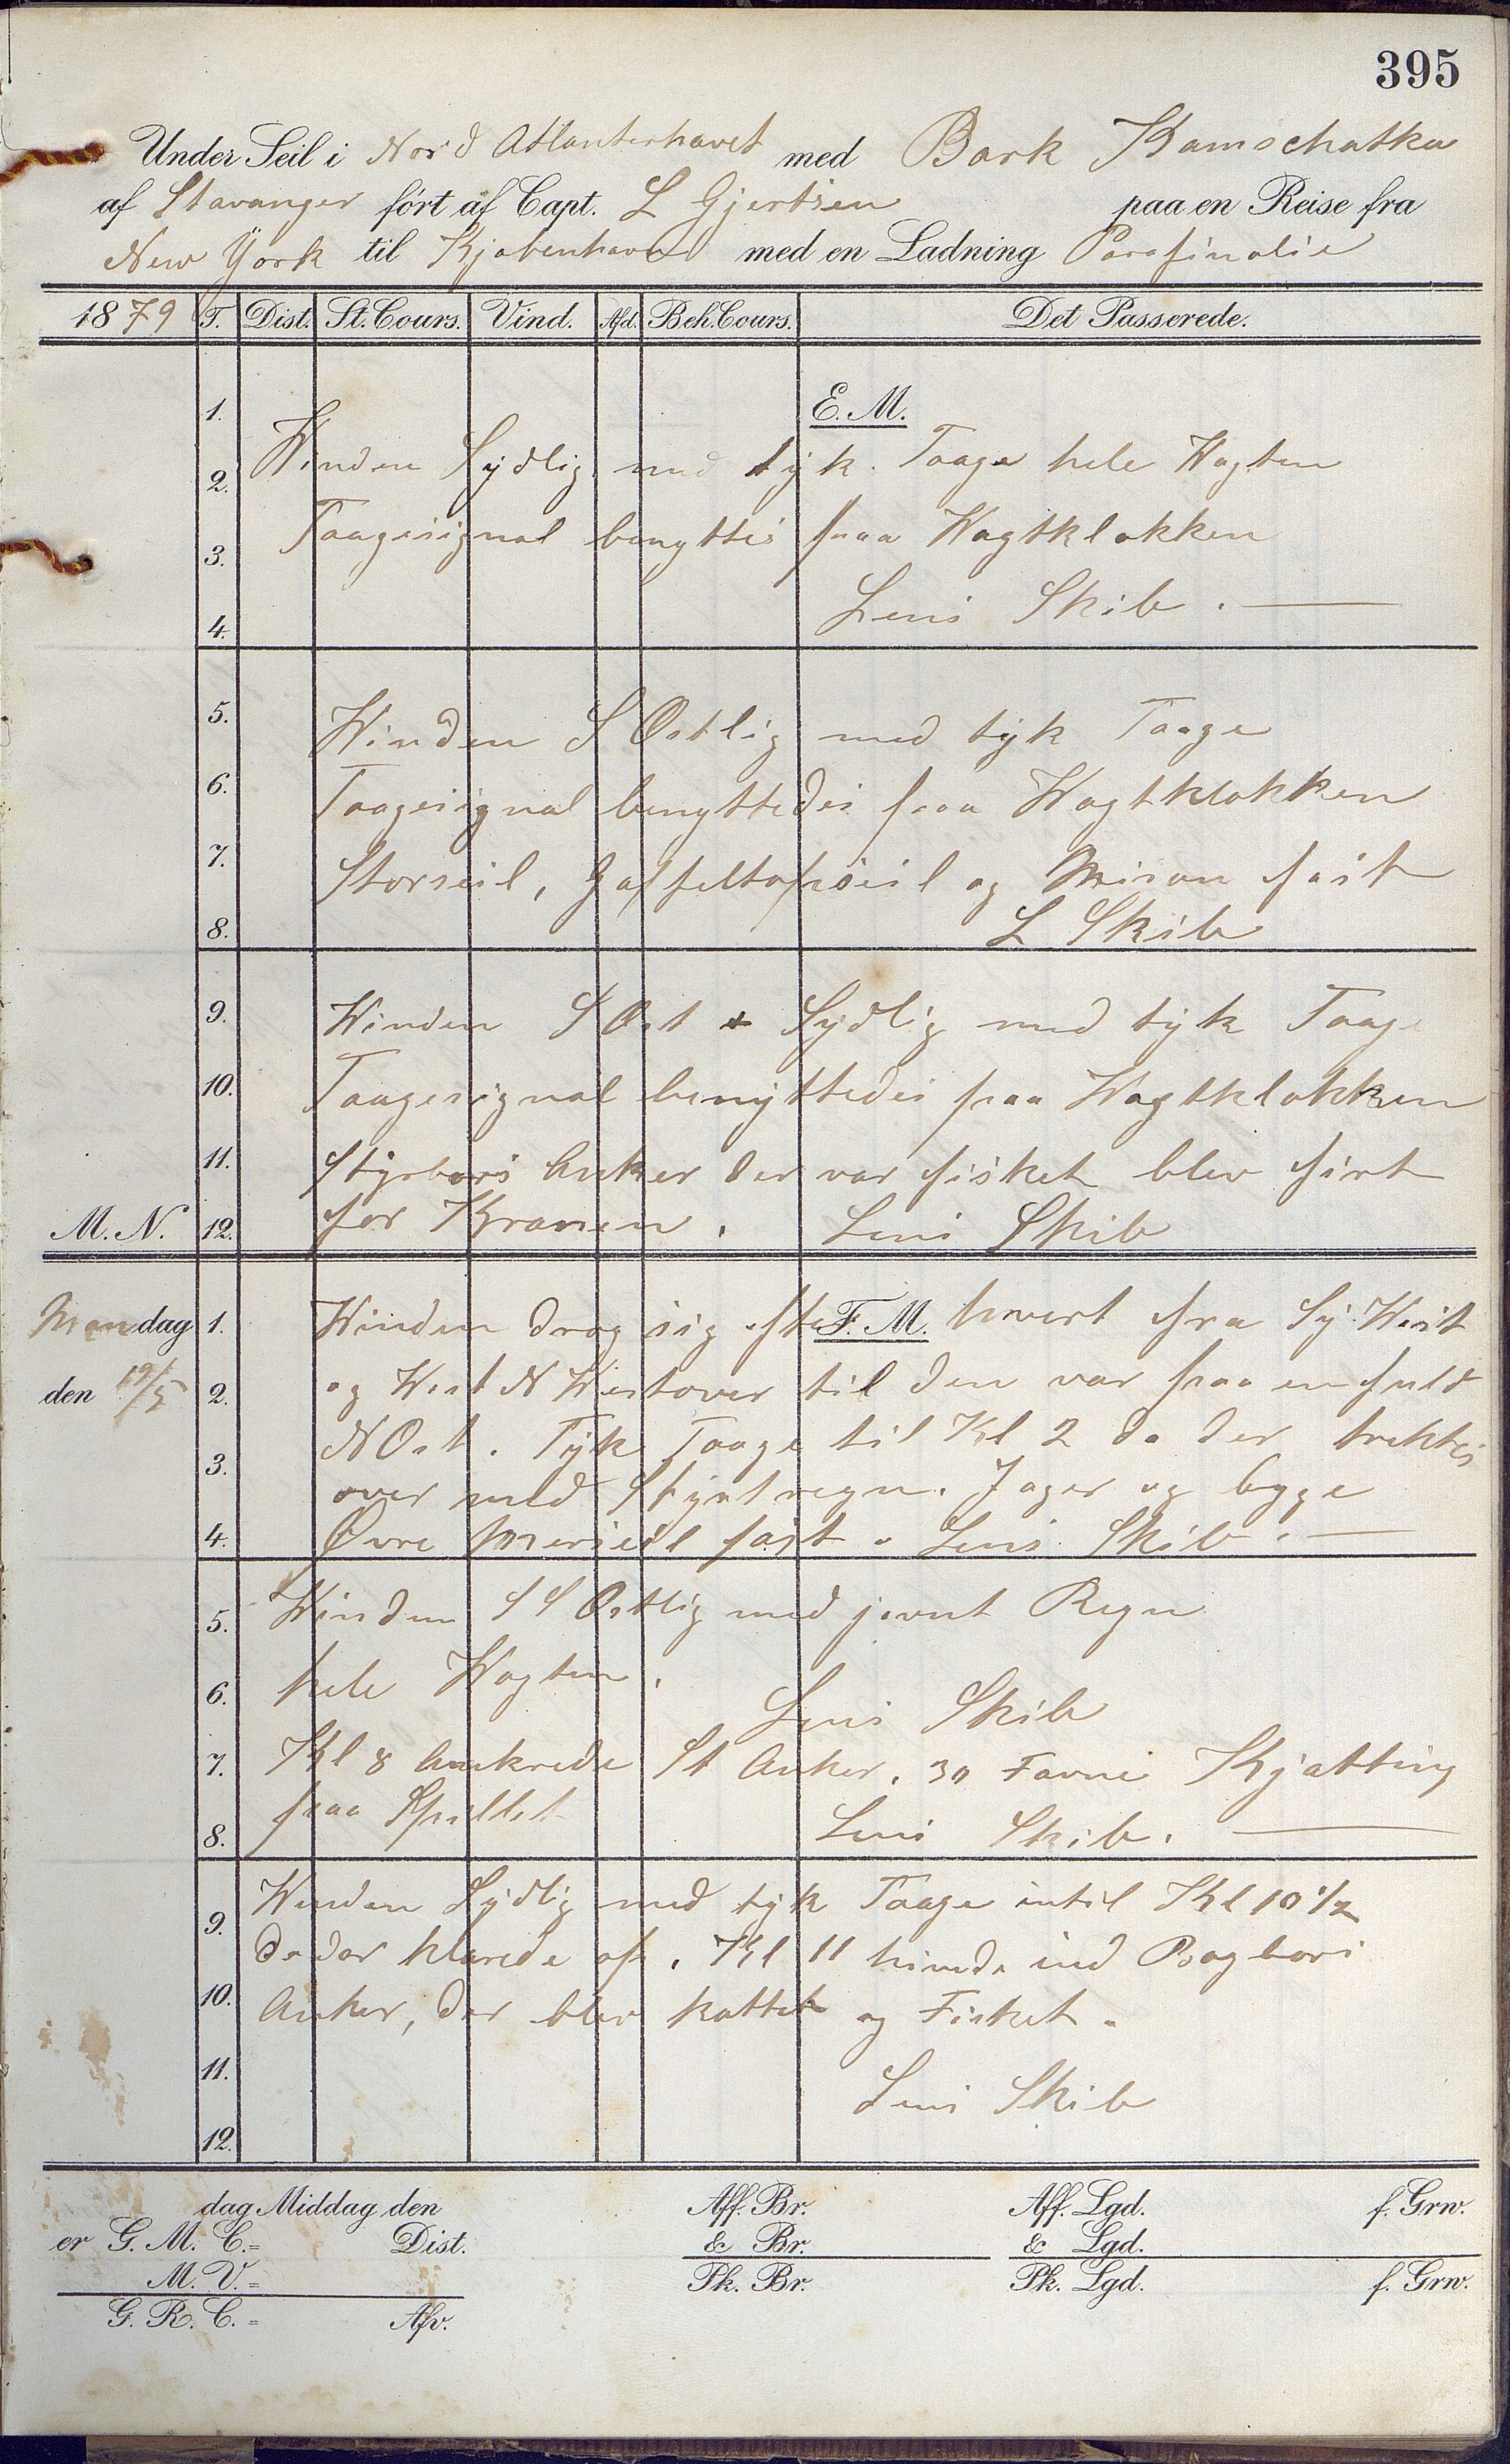 395
Under Seil i Nord Atlanterhavet med Bark Kamschatka
af Stavanger ført af Capt. L Gjertsen paa en Reise fra
New York til Kjøbenhavn med en Ladning Parafinolie
1879 T. Dist. St. Cours. Vind. Afd. Beh. Cours. Det Passerede.
1. E. M.
2. Winden Sydlig med tyk Taage hele Wagten
3. Taagesignal benyttes paa Wagtklokken
4. Lens Skib.
5. Winden S Ostlig med tyk Taage
6. Taagesignal benyttedes paa Wagtklokken
7. Storseil, Gaffeltopseil og Mesan fast
8. L Skib
9. Winden S Ost & Sydlig med tyk Taage
10. Taagesignal benyttedes paa Wagtklokken
11. Styrbors Anker der var fisket blev firt
M. N. 12. for Kranen. Lens Skib
Mandag 1. Winden drog sig efter F. M. hvert fra Sy West
den 12/5 2. og West N Westover til den var paa en fuld
3. N Ost. Tyk Taage til Kl 2 da der trektes
over med Styrtregn. Jager og begge
4. Øvre Merseil fast. Lens Skib.
5. Winden S S Ostlig med jevnt Regn
6. hele Wagten.
Lens Skib
7. Kl 8 Ankrede St Anker. 30 Favne Kjætting
8. paa Spillet Lens Skib.
9. Winden Sydlig med tyk Taage intil Kl 10 1/2
da der klarede op. Kl 11 hivede ind Bagbors
10. Anker, der blev kattet og Fisket.
11. Lens Skib
12.
dag Middag den Aff. Br. Aff. Lgd. f. Grw.
er G. M. C.= Dist. & Br. & Lgd.
M. V.= Pk. Br. Pk. Lgd. f. Grw.
G. R. C.= Afv.